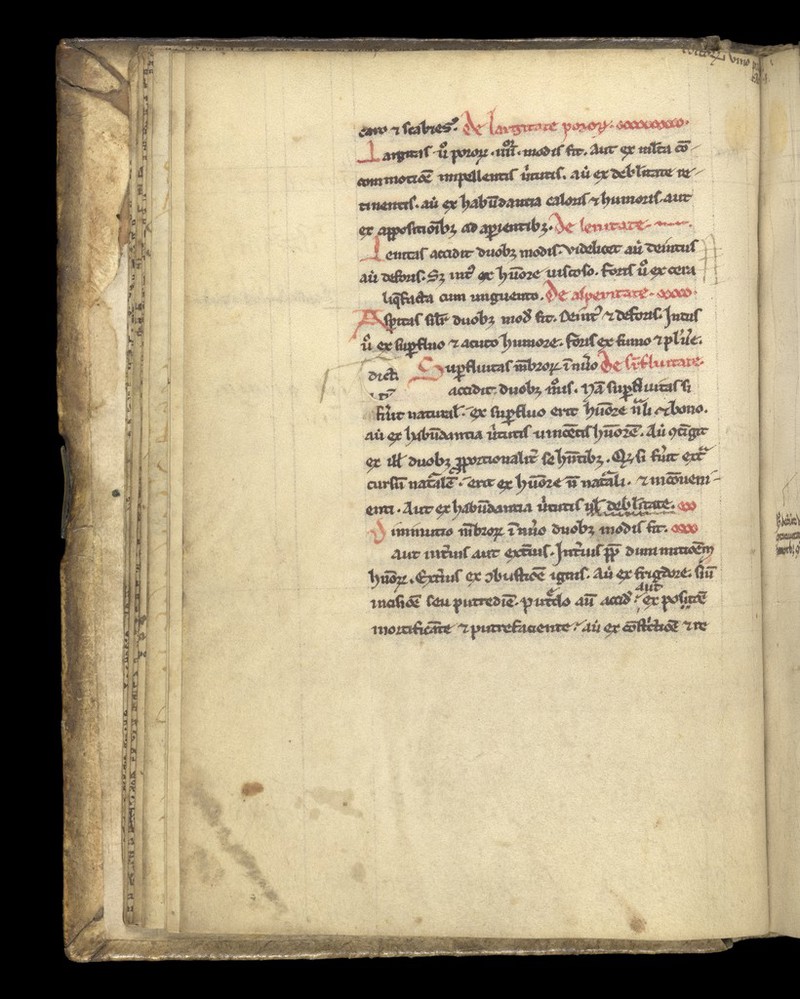 caro ⁊ scabies. De largitate pororꝝ.
Largitas ů pororꝝ .iiii. modis fit. Aut ex mlta cō
commotiōe impellentis ůtutis. aů ex debilitate re-
tinentis. aů ex habūdantia caloris ⁊ humoris. aut
ex appositiōibꝫ ad aperientibꝫ. De lenitate.
Lenitas accidit duobꝫ modis. videlicet aů deintus
aů deforis. Sꝫ int᷒ ex hūore uiscoso. foris ů ex cera
liq̄facta cum unguento. De asperitate.
Aspitas silꝉ duobꝫ mod̄ fit. Deint᷒ ⁊ deforis. Intus
ů ex supfluo ⁊ acuto humore. foris ex fumo ⁊ pluůe.
Supfluitas mēbrorꝝ ī nůo De supfluitate.
dicta
accidit duobꝫ mōis. Nā supfluitas si
fůit natural. ex supfluo erit hūore nꝉi ⁊ bono.
aů ex habūdantia ůtutis uincētis hūorē. Aů ꝯtīgit
ex ill duobꝫ ꝓportionalit̄ se hntibꝫ. Qꝫ si fůit ext̄
cursū natalē. erit ex hūore ñ natali. ⁊ incōueni-
enti. Aut ex habūdantia ůtutis uꝉ debilitate.
Diminutio mēbrorꝝ ī nůo duobꝫ modis fit.
aut int̄ius aut ext̄ius. Int̄ius ꝓp̄ diminutioēm
hūorꝝ. Ext̄ius ex ꝯbustiōe ignis. Aů ex frigdore. siů
aut
incisiōe seu putrediē. putdo aū accid̄ ex positiōe
mortificāte ⁊ putrefaciente. aů ex cōstictiōe ⁊ re